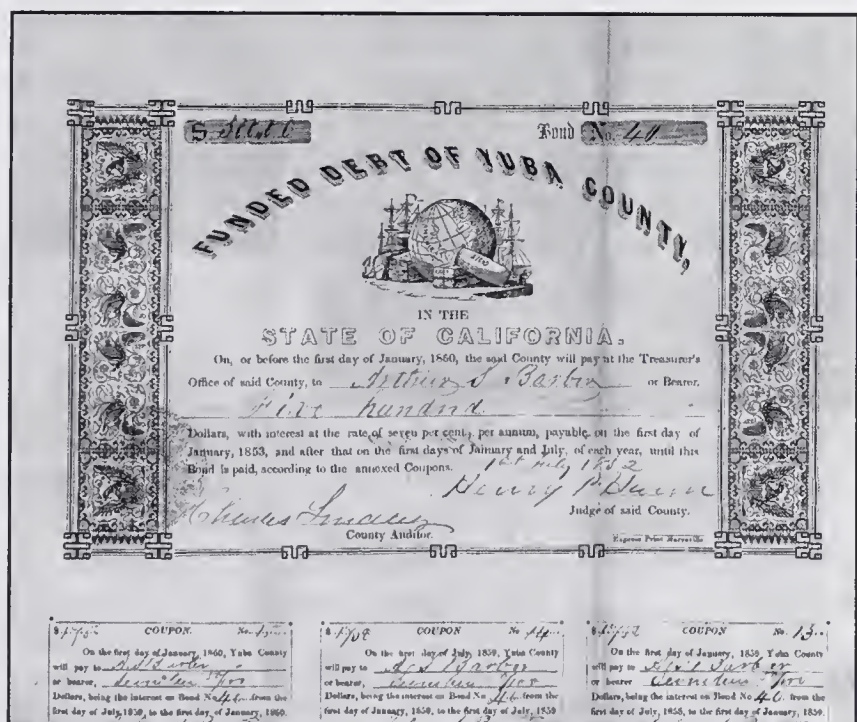 $ 500.00 Bond No. 40
FUNDED DEBT OF YUBA COUNTY,
IN THE
STATE OF CALIFORNIA.
On, or before the first day of January, 1860, the said County will pay at the Treasurer's
Office of said County, to Arthur S Barber or Bearer,
Five hundred
Dollars, with interest at the rate of seven per cent, per annum, payable on the first day of
January, 1853, and after that on the first days of January and July, of each year, until this
Bond is paid, according to the annexed Coupons. 1st July 1852
Henry P
Judge of said County.
Charles
County Auditor.
Express Print Marysville
$ 17.50 COUPON. No. 15
On the first day of January, 1860, Yuba County
will pay to A S Barber
or bearer, Seventeen 50/100
Dollars, being the interest on Bond No 40 from the
first day of July, 1859, to the first day of January, 1860.
$ 17.50 COUPON No 14
On the first day of July, 1859, Yuba County
will pay to A S Barber
or bearer, Seventeen 50/100
Dollars, being the interest on Bond No 40 from the
first day of January, 1859, to the first day of July, 1859
$ 17.50 COUPON No. 13
On the first day of January, 1859, Yuba County
will pay to A S Barber
or bearer Seventeen 50/100
Dollars, being the interest on Bond No 40 from the
first day of July, 1858, to the first day of January, 1859.